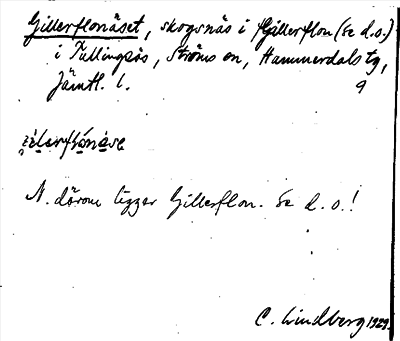 Gillerflonäset, skogsnäs i Gillerflon (Se d.o.)
i Tullingsås, Ströms sn, Hammerdals tg,
Jämtl. l. 9
N. därom ligger Gillerflon. Se d.o.!
C. Lindberg 1929.